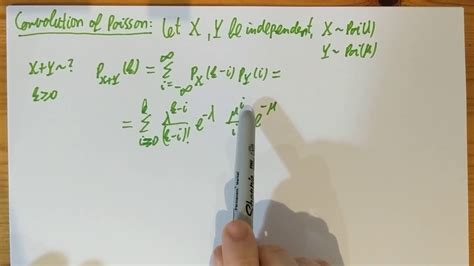 Convolution of Poisson: Let X, Y be independent, X ~ Poi(λ)
Y ~ Poi(μ)
X+Y ~ ? P_{X+Y}(k) = \sum_{i=-∞}^{∞} P_X(k-i) P_Y(i) =
k≥0
= \sum_{i=0}^{k} \frac{λ^{k-i}}{(k-i)!} e^{-λ} \frac{μ^i}{i} e^{-μ}
Sharpie